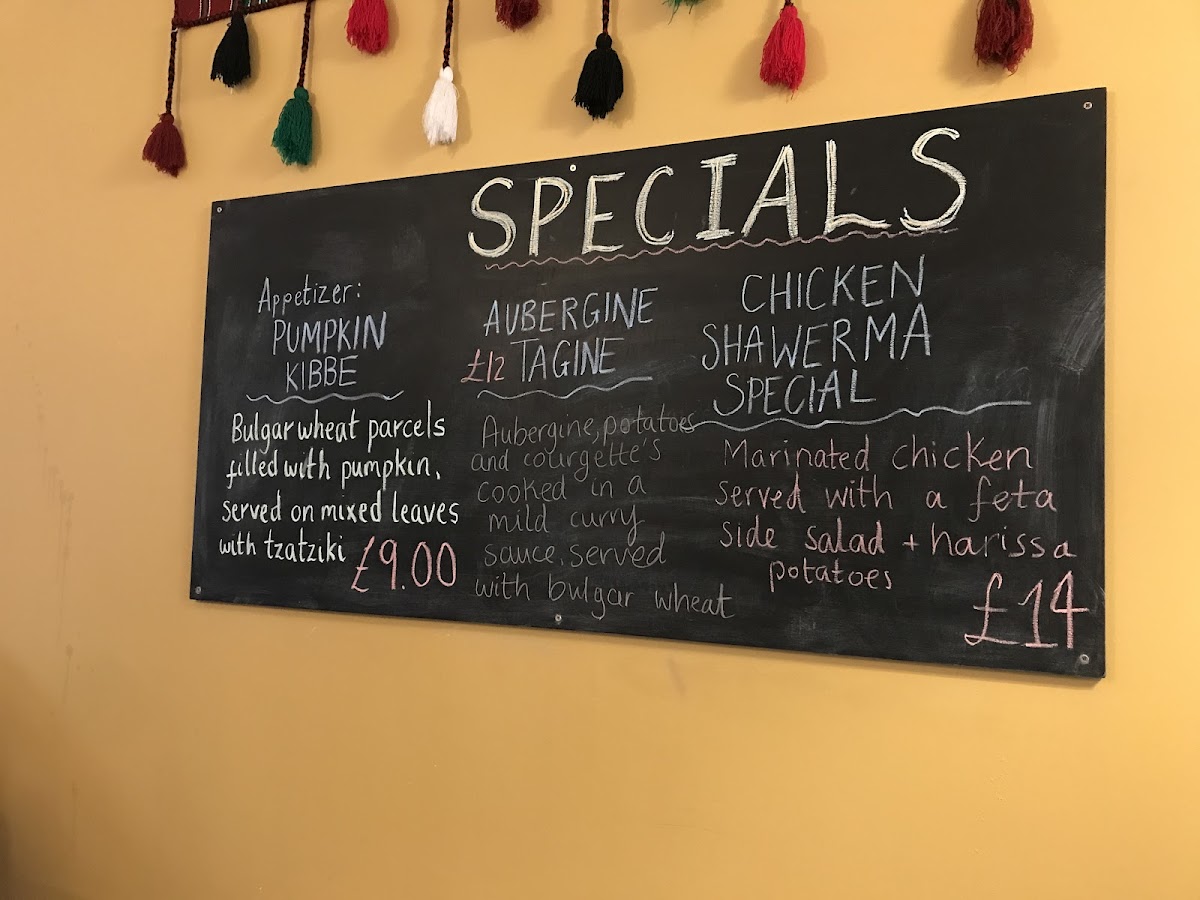 SPECIALS
Appetizer:
PUMPKIN
KIBBE
Bulgar wheat parcels
filled with pumpkin,
served on mixed leaves
with tzatziki £9.00
AUBERGINE
£12 TAGINE
Aubergine, potatoes
and courgette's
cooked in a
mild curry
sauce. served
with bulgar wheat
CHICKEN
SHAWERMA
SPECIAL
Marinated chicken
served with a feta
side salad + harissa
potatoes
£14